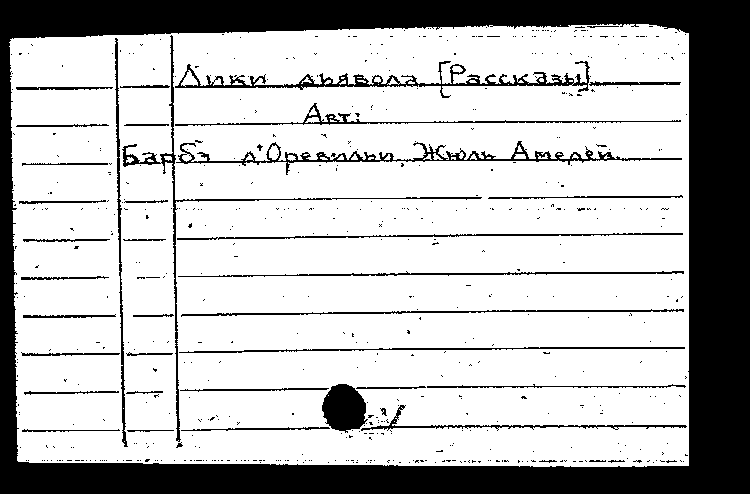 Лики дьявола [Рассказы]
Авт:
Барбэ д'Оревильи Жюль Амедей.